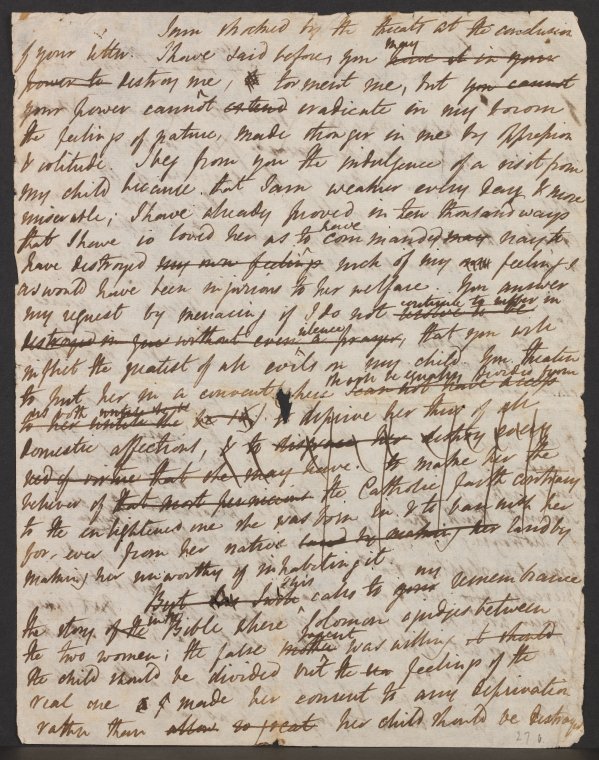 I am shocked by the threats at the conclusion
of your letter. I have said before, you may have it in your
power to destroy me, torment me, but you cannot
your power cannot extend eradicate in my bosom
the feelings of nature, made stronger in me by oppression
& solitude. I beg from you the indulgence of a visit from
my child because that I am weaker every day & more
miserable; I have already proved in ten thousand ways
that I have so loved her as to have commanded nay to
have destroyed my own feelings such of my feelings
as would have been injurious to her welfare. You answer
my request by menacing if I do not continue to suffer in
silence, that you will
inflict the greatest of all evils on my child. You threaten
to put her in a convent where
us both to deprive her thus of all
domestic affections, & to destroy every
seed of virtue that she may have. to make her the
believer of that most pernicious the Catholic faith contrary
to the enlightened one she was born in & to ban with her
for ever from her native land by
making her unworthy of inhabiting it.
But this calls to my remembrance
the story of the in the Bible where Solomon judges between
the two women; the false mother parent was willing it should
the child should be divided but the feelings of the
real one made her consent to any deprivation
rather than allow so great her child should be destroyed
27 6